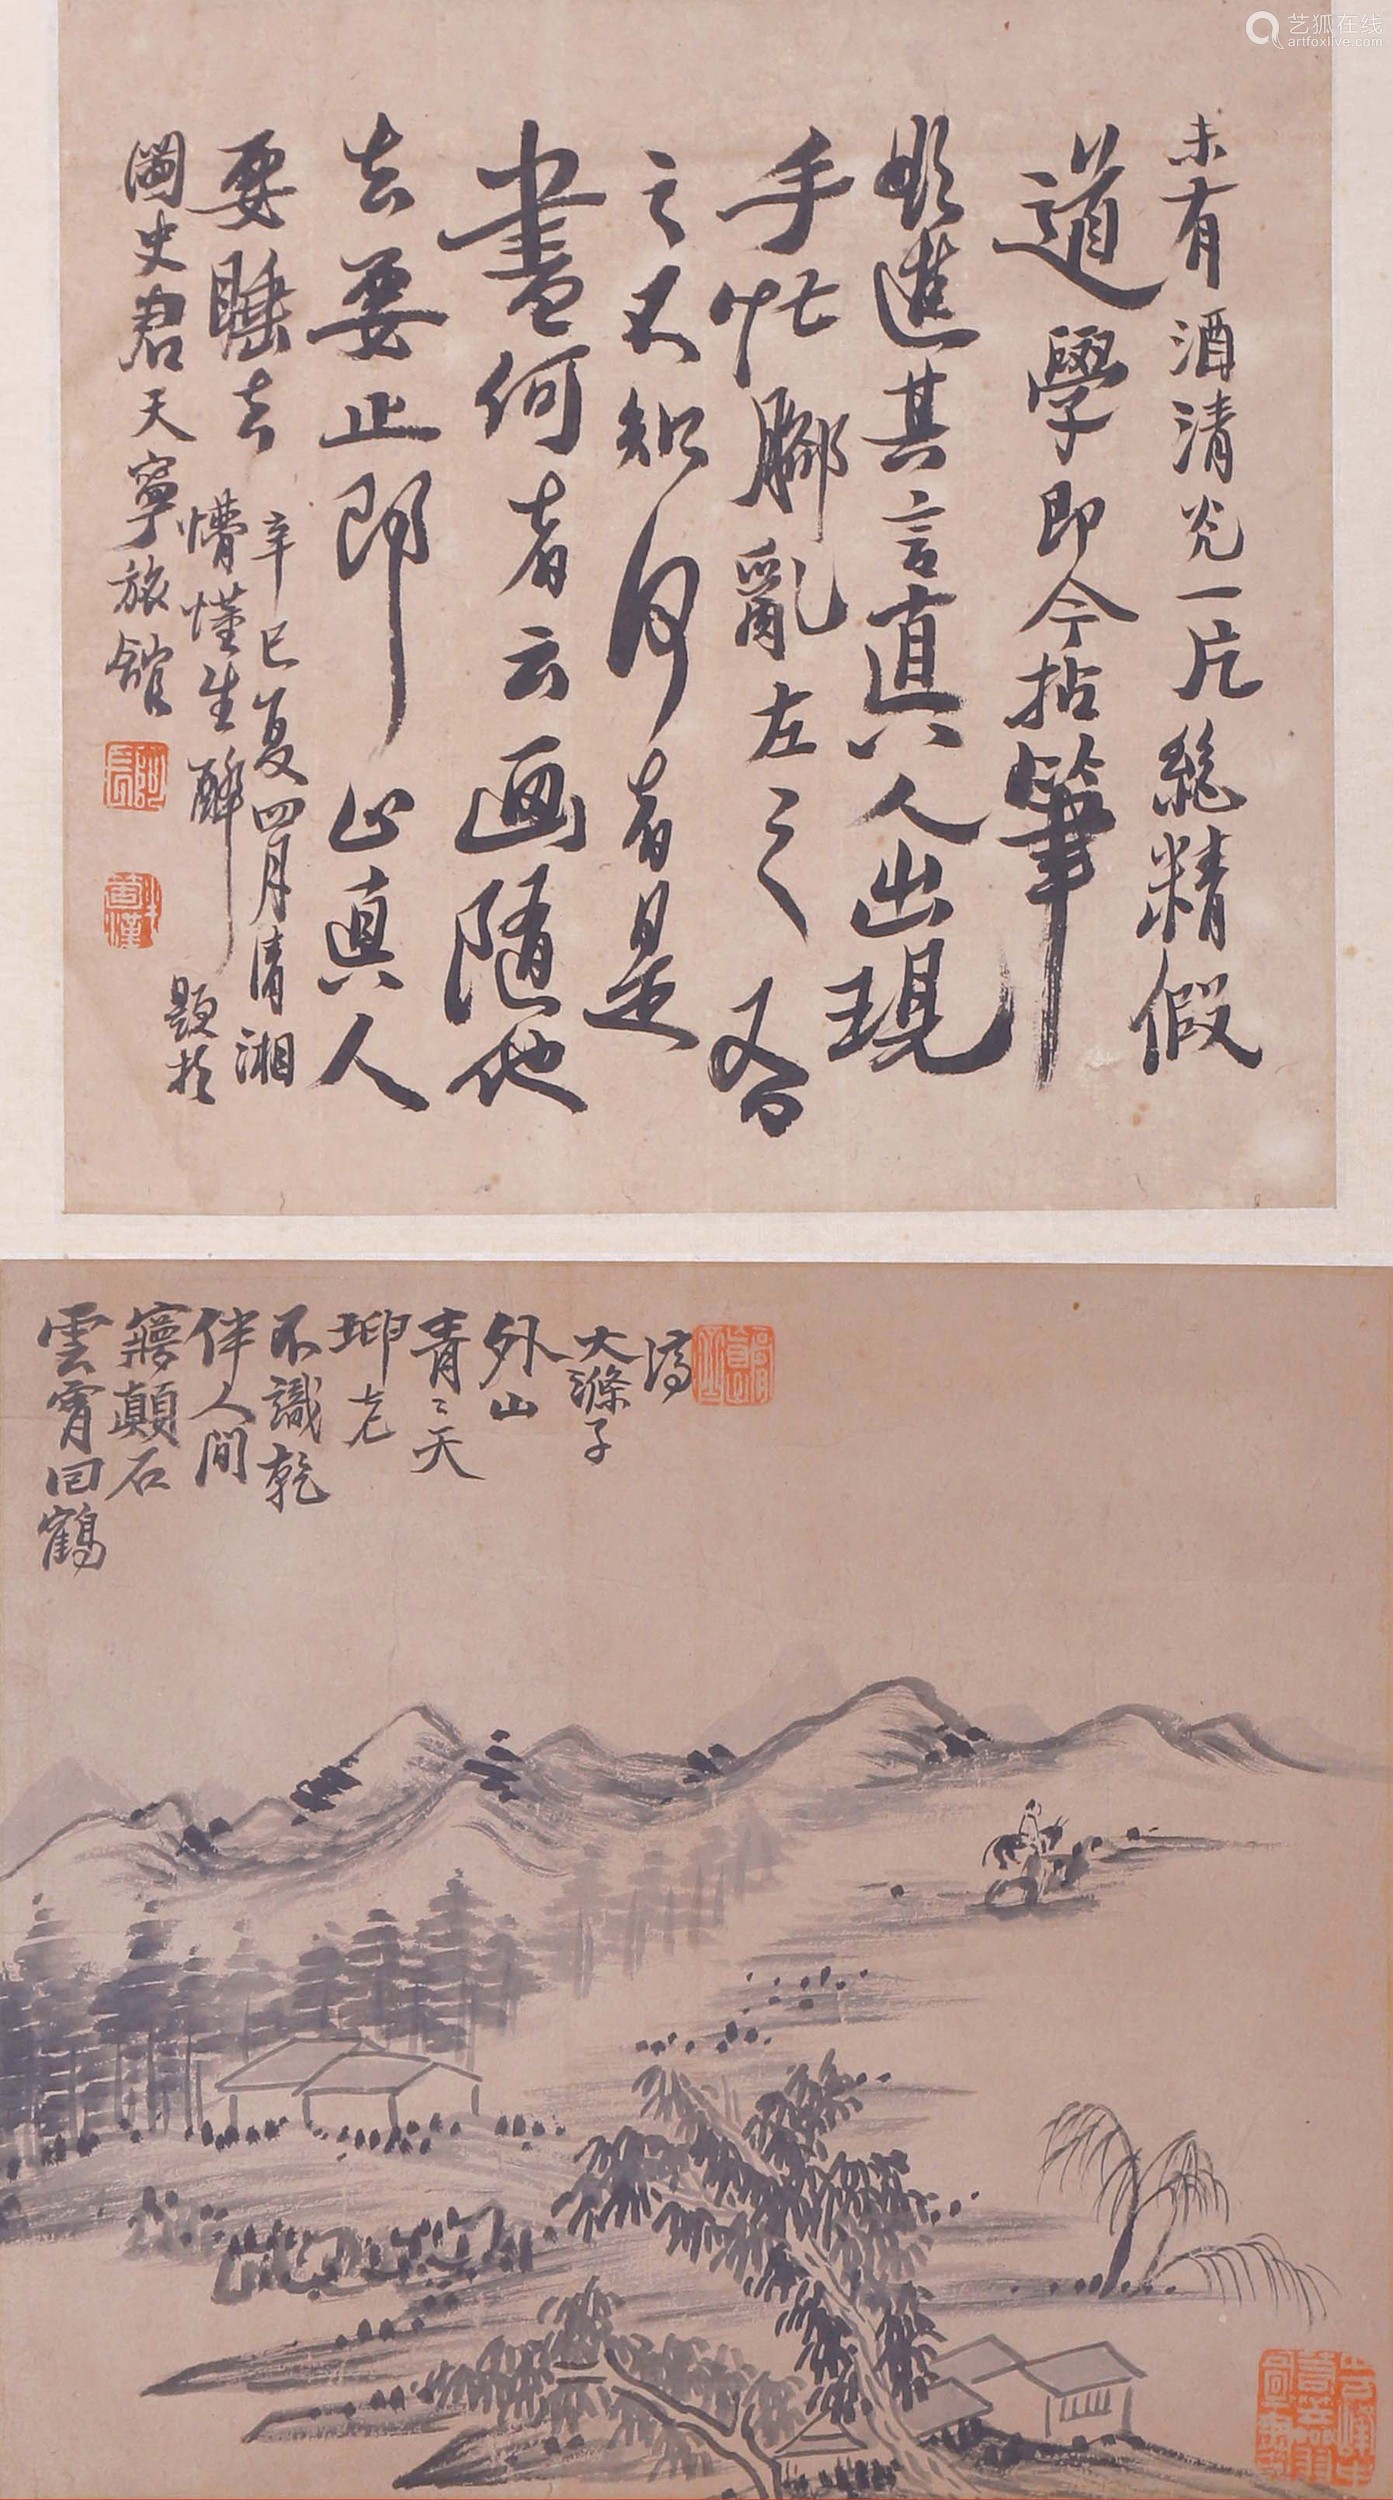 艺狐在线
artfoxlive.com
未有酒清光一片精假
道學即今拈筆
進其言真人出現
手忙腳亂左之又看
之不知何者是
書何者云画隨他
去要止即止真人
要睡去
辛巳夏四月清湘
懵懂生醉題於
史君天寧旅館
雲霄回鶴
顛石
伴人間
不識乾
坤老
青〻天
外山
大滌子
濟